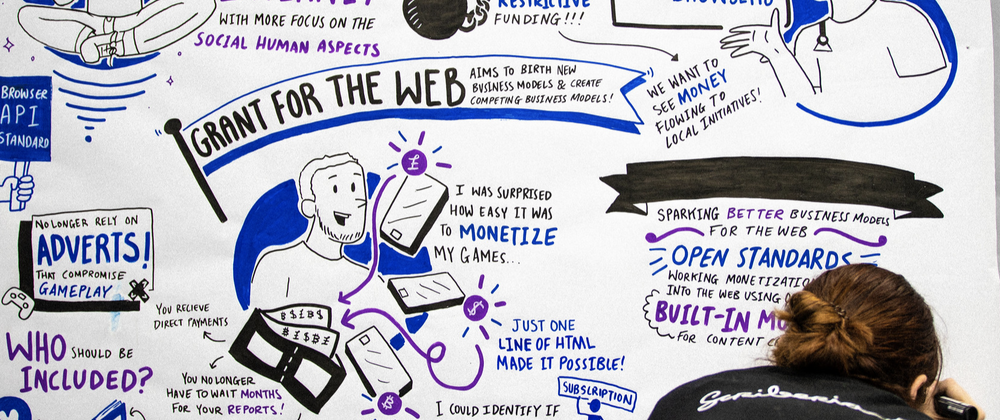 WITH MORE FOCUS ON THE
SOCIAL HUMAN ASPECTS
RESTRICTIVE
FUNDING!!!
BROWSER
API
STANDARD
GRANT FOR THE WEB
AIMS TO BIRTH NEW
BUSINESS MODELS & CREATE
COMPETING BUSINESS MODELS!
WE WANT TO
SEE MONEY
FLOWING TO
LOCAL INITIATIVES!
NO LONGER RELY ON
ADVERTS!
THAT COMPROMISE
GAMEPLAY
WHO SHOULD BE
INCLUDED?
£
I WAS SURPRISED
HOW EASY IT WAS
TO MONETIZE
MY GAMES...
$
JUST ONE
LINE OF HTML
MADE IT POSSIBLE!
YOU RECIEVE
DIRECT PAYMENTS
YOU NO LONGER
HAVE TO WAIT MONTHS
FOR YOUR REPORTS!
I COULD IDENTIFY IF
SUBSCRIPTION
SPARKING BETTER BUSINESS MODELS
FOR THE WEB
OPEN STANDARDS
WORKING
INTO THE WEB USING
BUILT-IN
FOR CONTENT